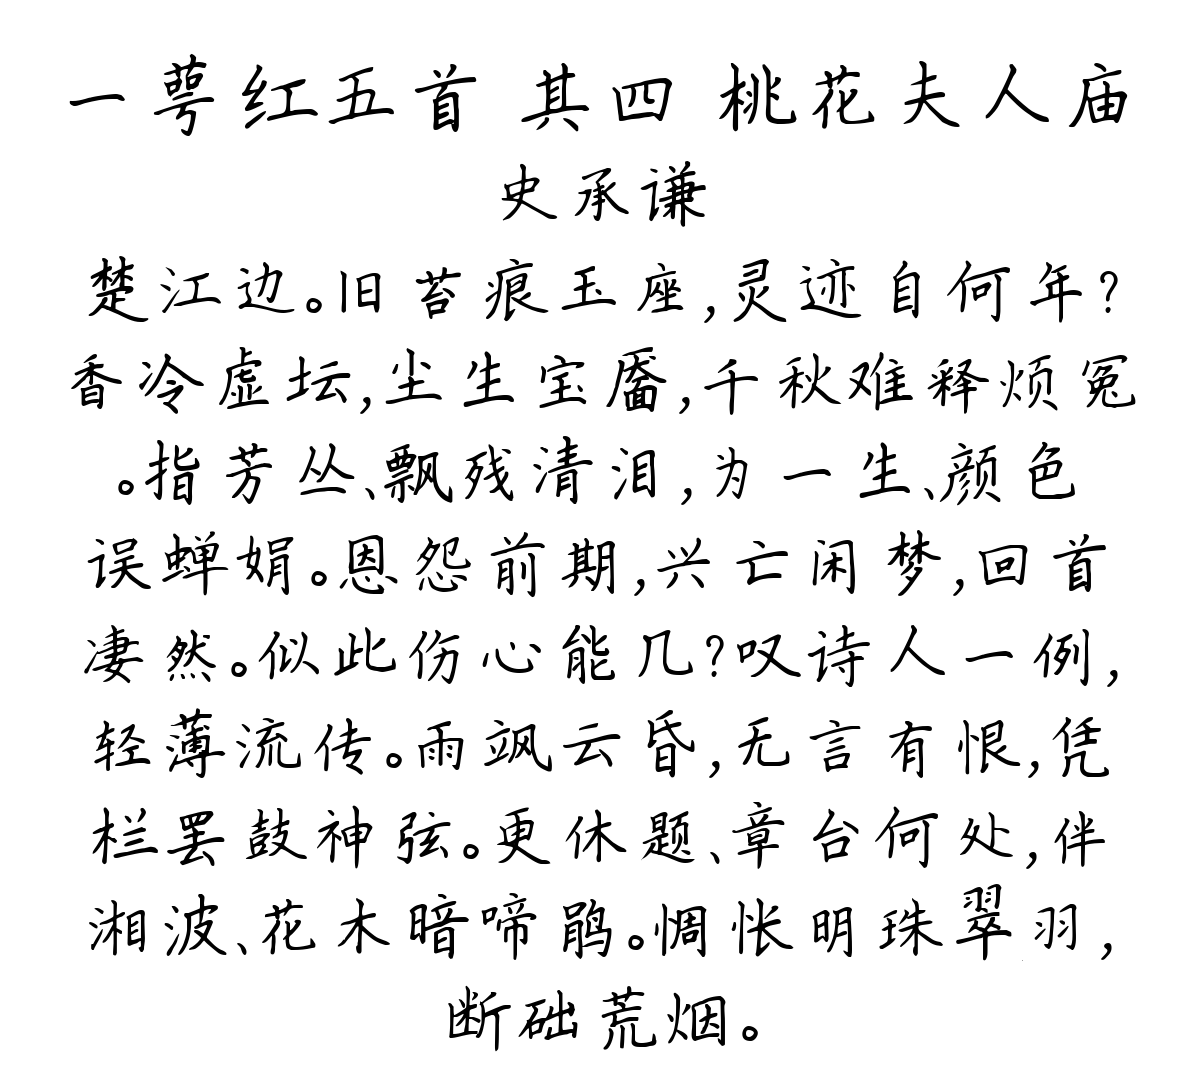 一萼红五首 其四 桃花夫人庙
史承谦
楚江边。旧苔痕玉座,灵迹自何年?
香冷虚坛,尘生宝靥,千秋难释烦冤
。指芳丛、飘残清泪,为一生、颜色
误蝉娟。恩怨前期,兴亡闲梦,回首
凄然。似此伤心能几?叹诗人一例,
轻薄流传。雨飒云昏,无言有恨,凭
栏罢鼓神弦。更休题、章台何处,伴
湘波、花木暗啼鹃。惆怅明珠翠羽,
断础荒烟。